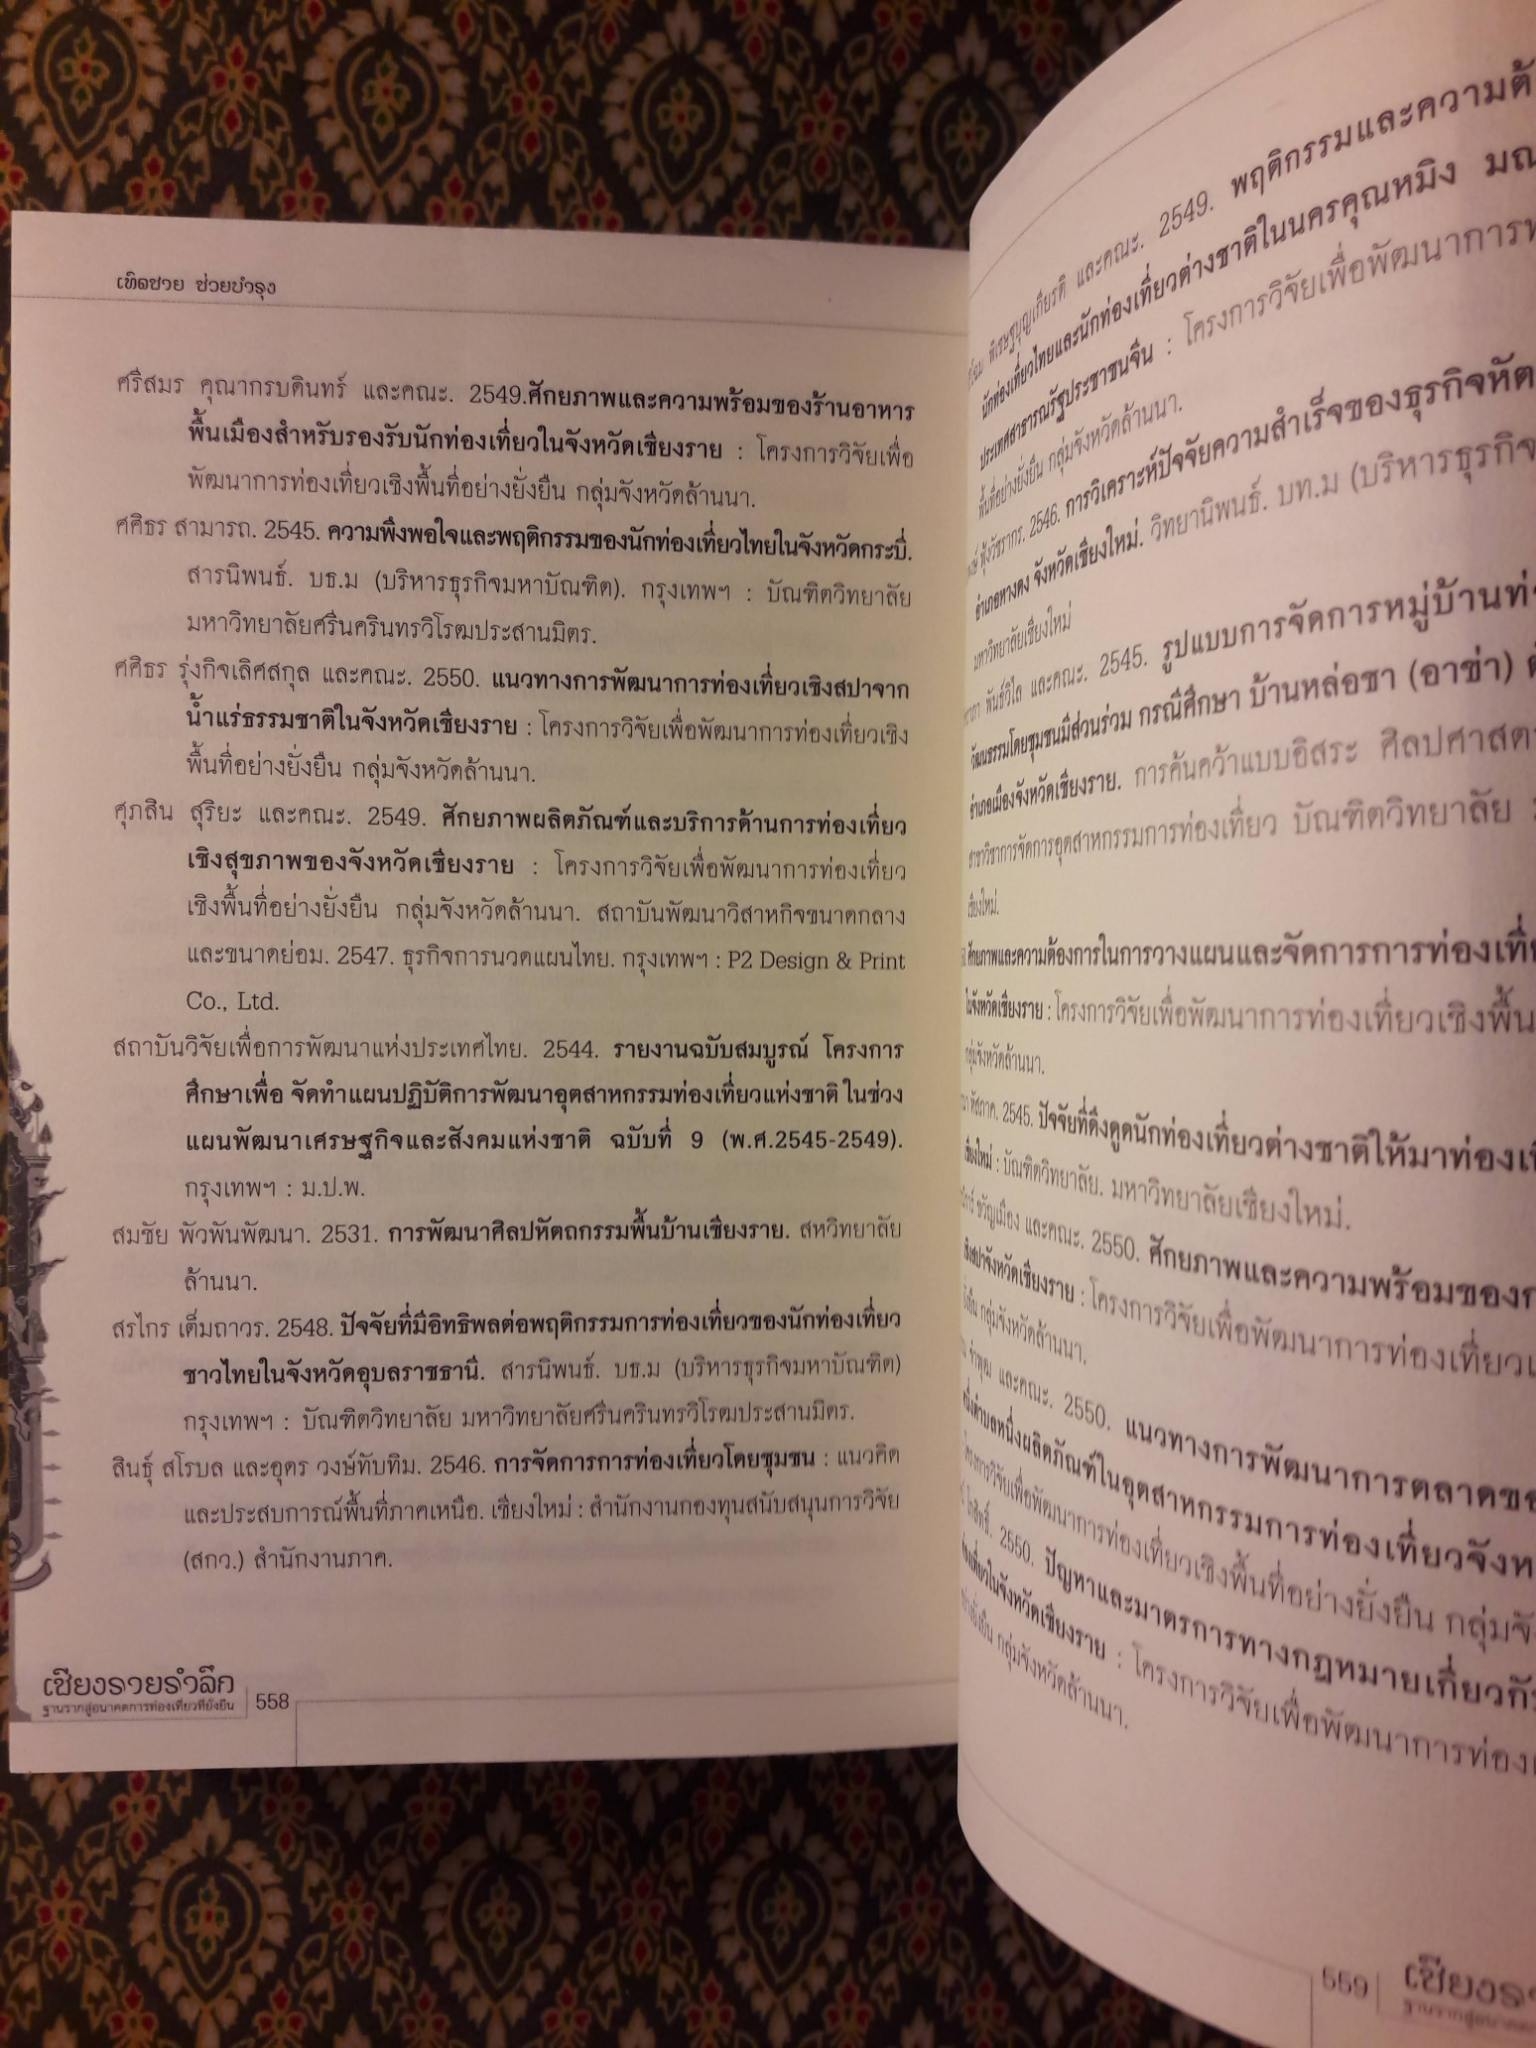 เทิดชาย ช่วยบำรุง
ศรีสมร คุณากรบดินทร์ และคณะ. 2549.ศักยภาพและความพร้อมของร้านอาหาร
พื้นเมืองสำหรับรองรับนักท่องเที่ยวในจังหวัดเชียงราย : โครงการวิจัยเพื่อ
พัฒนาการท่องเที่ยวเชิงพื้นที่อย่างยั่งยืน กลุ่มจังหวัดล้านนา.
ศศิธร สามารถ. 2545. ความพึงพอใจและพฤติกรรมของนักท่องเที่ยวไทยในจังหวัดกระบี่.
สารนิพนธ์. บธ.ม (บริหารธุรกิจมหาบัณฑิต). กรุงเทพฯ : บัณฑิตวิทยาลัย
มหาวิทยาลัยศรีนครินทรวิโรฒประสานมิตร.
ศศิธร รุ่งกิจเลิศสกุล และคณะ. 2550. แนวทางการพัฒนาการท่องเที่ยวเชิงสปาจาก
น้ำแร่ธรรมชาติในจังหวัดเชียงราย : โครงการวิจัยเพื่อพัฒนาการท่องเที่ยวเชิง
พื้นที่อย่างยั่งยืน กลุ่มจังหวัดล้านนา.
ศุภสิน สุริยะ และคณะ. 2549. ศักยภาพผลิตภัณฑ์และบริการด้านการท่องเที่ยว
เชิงสุขภาพของจังหวัดเชียงราย : โครงการวิจัยเพื่อพัฒนาการท่องเที่ยว
เชิงพื้นที่อย่างยั่งยืน กลุ่มจังหวัดล้านนา. สถาบันพัฒนาวิสาหกิจขนาดกลาง
และขนาดย่อม. 2547. ธุรกิจการนวดแผนไทย. กรุงเทพฯ : P2 Design & Print
Co., Ltd.
สถาบันวิจัยเพื่อการพัฒนาแห่งประเทศไทย. 2544. รายงานฉบับสมบูรณ์ โครงการ
ศึกษาเพื่อ จัดทำแผนปฏิบัติการพัฒนาอุตสาหกรรมท่องเที่ยวแห่งชาติ ในช่วง
แผนพัฒนาเศรษฐกิจและสังคมแห่งชาติ ฉบับที่ 9 (พ.ศ.2545-2549).
กรุงเทพฯ : ม.ป.พ.
สมชัย พัวพันพัฒนา. 2531. การพัฒนาศิลปหัตถกรรมพื้นบ้านเชียงราย. สหวิทยาลัย
ล้านนา.
สรไกร เต็มถาวร. 2548. ปัจจัยที่มีอิทธิพลต่อพฤติกรรมการท่องเที่ยวของนักท่องเที่ยว
ชาวไทยในจังหวัดอุบลราชธานี. สารนิพนธ์. บธ.ม (บริหารธุรกิจมหาบัณฑิต)
กรุงเทพฯ : บัณฑิตวิทยาลัย มหาวิทยาลัยศรีนครินทรวิโรฒประสานมิตร.
สินธุ์ สโรบล และอุดร วงษ์ทับทิม. 2546. การจัดการการท่องเที่ยวโดยชุมชน : แนวคิด
และประสบการณ์พื้นที่ภาคเหนือ. เชียงใหม่ : สำนักงานกองทุนสนับสนุนการวิจัย
(สกว.) สำนักงานภาค.
เชียงรายรำลึก
ฐานรากสู่อนาคตการท่องเที่ยวที่ยั่งยืน
558
พิเศษฐบุญเกียรติ และคณะ. 2549. พฤติกรรมและความต้
นักท่องเที่ยวไทยและนักท่องเที่ยวต่างชาติในนครคุณหมิง มณ
ประเทศสาธารณรัฐประชาชนจีน : โครงการวิจัยเพื่อพัฒนาการท
พื้นที่อย่างยั่งยืน กลุ่มจังหวัดล้านนา.
ฟุ้งวัชรากร. 2546. การวิเคราะห์ปัจจัยความสำเร็จของธุรกิจหัต
อำเภอหางดง จังหวัดเชียงใหม่. วิทยานิพนธ์. บท.ม (บริหารธุรกิจ
มหาวิทยาลัยเชียงใหม่
พันธ์วิไล และคณะ. 2545. รูปแบบการจัดการหมู่บ้านท่
วัฒนธรรมโดยชุมชนมีส่วนร่วม กรณีศึกษา บ้านหล่อชา (อาข่า) ต
อำเภอเมืองจังหวัดเชียงราย. การค้นคว้าแบบอิสระ ศิลปศาสต
สาขาวิชาการจัดการอุตสาหกรรมการท่องเที่ยว บัณฑิตวิทยาลัย
เชียงใหม่.
ศักยภาพและความต้องการในการวางแผนและจัดการการท่องเที่ย
ในจังหวัดเชียงราย : โครงการวิจัยเพื่อพัฒนาการท่องเที่ยวเชิงพื้น
กลุ่มจังหวัดล้านนา.
หัสภาค. 2545. ปัจจัยที่ดึงดูดนักท่องเที่ยวต่างชาติให้มาท่องเที
เชียงใหม่ : บัณฑิตวิทยาลัย. มหาวิทยาลัยเชียงใหม่.
ขวัญเมือง และคณะ. 2550. ศักยภาพและความพร้อมของก
เชิงสปาจังหวัดเชียงราย : โครงการวิจัยเพื่อพัฒนาการท่องเที่ยวเ
ยั่งยืน กลุ่มจังหวัดล้านนา.
และคณะ. 2550. แนวทางการพัฒนาการตลาดขอ
หนึ่งตำบลหนึ่งผลิตภัณฑ์ในอุตสาหกรรมการท่องเที่ยวจังห
โครงการวิจัยเพื่อพัฒนาการท่องเที่ยวเชิงพื้นที่อย่างยั่งยืน กลุ่มจัง
โกสิทธิ์. 2550. ปัญหาและมาตรการทางกฎหมายเกี่ยวกับ
ท่องเที่ยวในจังหวัดเชียงราย : โครงการวิจัยเพื่อพัฒนาการท่อง
อย่างยั่งยืน กลุ่มจังหวัดล้านนา.
559
เชียงรา
ฐานรากสู่อนาคต